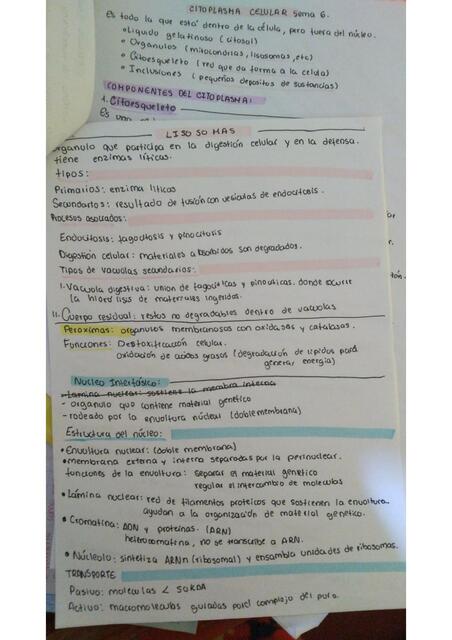 CITOPLASMA CELULAR Sema 6.
Es todo la que está dentro de la célula, pero fuera del núcleo.
• Liquido gelatinoso (citosol)
• Organulos (mitocondrias, lisosomas, etc)
• Citoesqueleto (red que da forma a la celula)
• Inclusiones (pequeños depositos de sustancias)
COMPONENTES DEL CITOPLASMA:
1. Citoesqueleto
Es
LISOSOMAS
organulo que participa en la digestión celular y en la defensa.
tiene enzimas líticas.
tipos:
Primarios: enzima líticas
Secundarios: resultado de fusión con vesículas de endocitosis.
Procesos asociados:
Endocitosis: fagocitosis y pinocitosis
Digestión celular: materiales absorbidos son degradados.
Tipos de vacuolas secundarias:
I. Vacuola digestiva: union de fagociticas y pinociticas. donde ocurre
la hidrólisis de materiales ingeridos.
II. Cuerpo residual: restos no degradables dentro de vacuolas
Peroximas: organulos membranosos con oxidasas y catalasas.
Funciones: Destoxificación celular.
oxidación de acidos grasos (degradación de lípidos para
generar energia)
Nucleo Interfásico:
- Lamina nuclear: sostiene la membra interna
- organulo que contiene material genético
- rodeado por la envoltura núclear (doble membrana)
Estructura del núcleo:
• Envoltura nuclear: (doble membrana)
• membrana externa y interna separadas por la perinuclear.
funciones de la envoltura: separar el material genético
regular el intercambio de moleculas
• Lámina nuclear: red de filamentos proteicos que sostienen la envoltura.
ayudan a la organización de material genetico.
• Cromatina: ADN y proteínas. (ARN)
heterocromatina, no se transcribe a ARN.
• Núcleolo: sintetiza ARNn (ribosomal) y ensambla unidades de ribosomas.
TRANSPORTE
Pasivo: moleculas < 50KDA
Activo: macromoleculas guiadas por el complejo del poro.